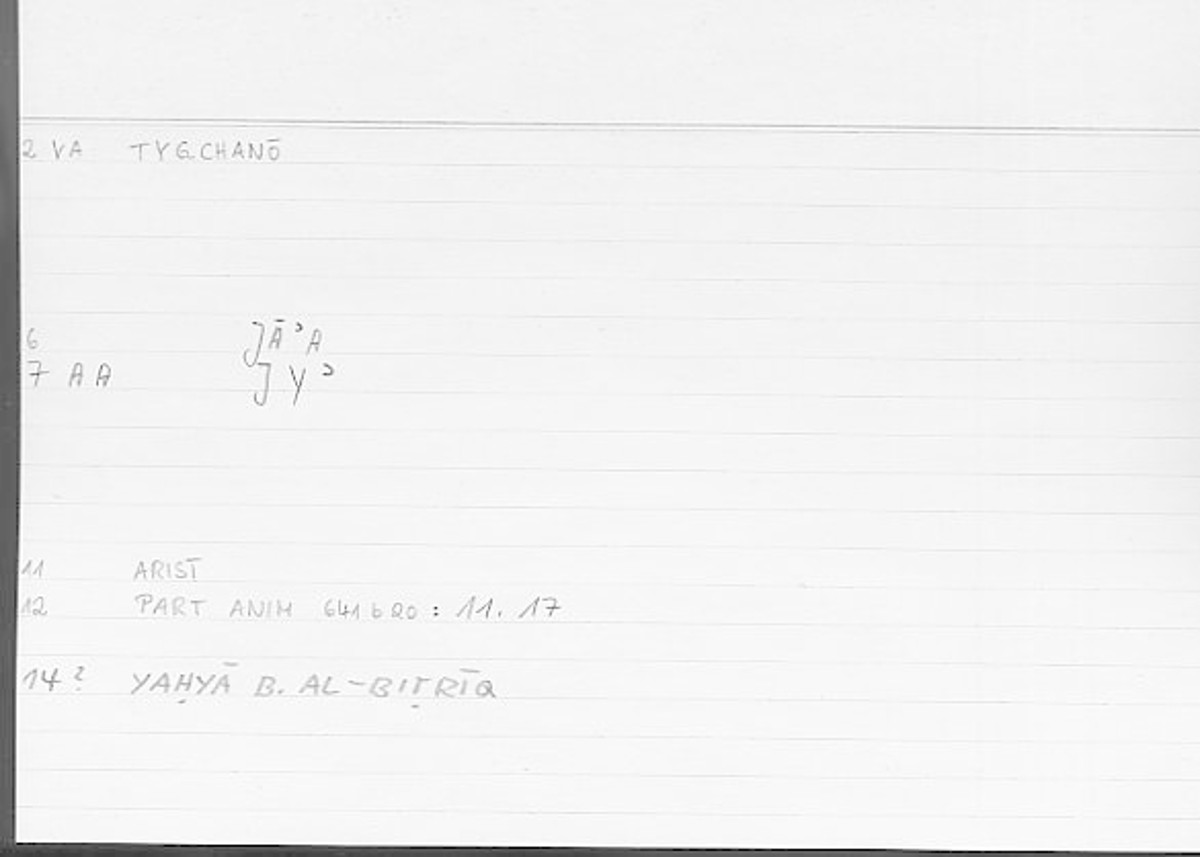 2 VA TYGCHANŌ
6 J̌Āʾ A
7 AA J Y ʾ
11 ARIST
12 PART ANIM 641 b 20 : 11. 17
14 ? YAḤYĀ B. AL-BIṬRĪQ